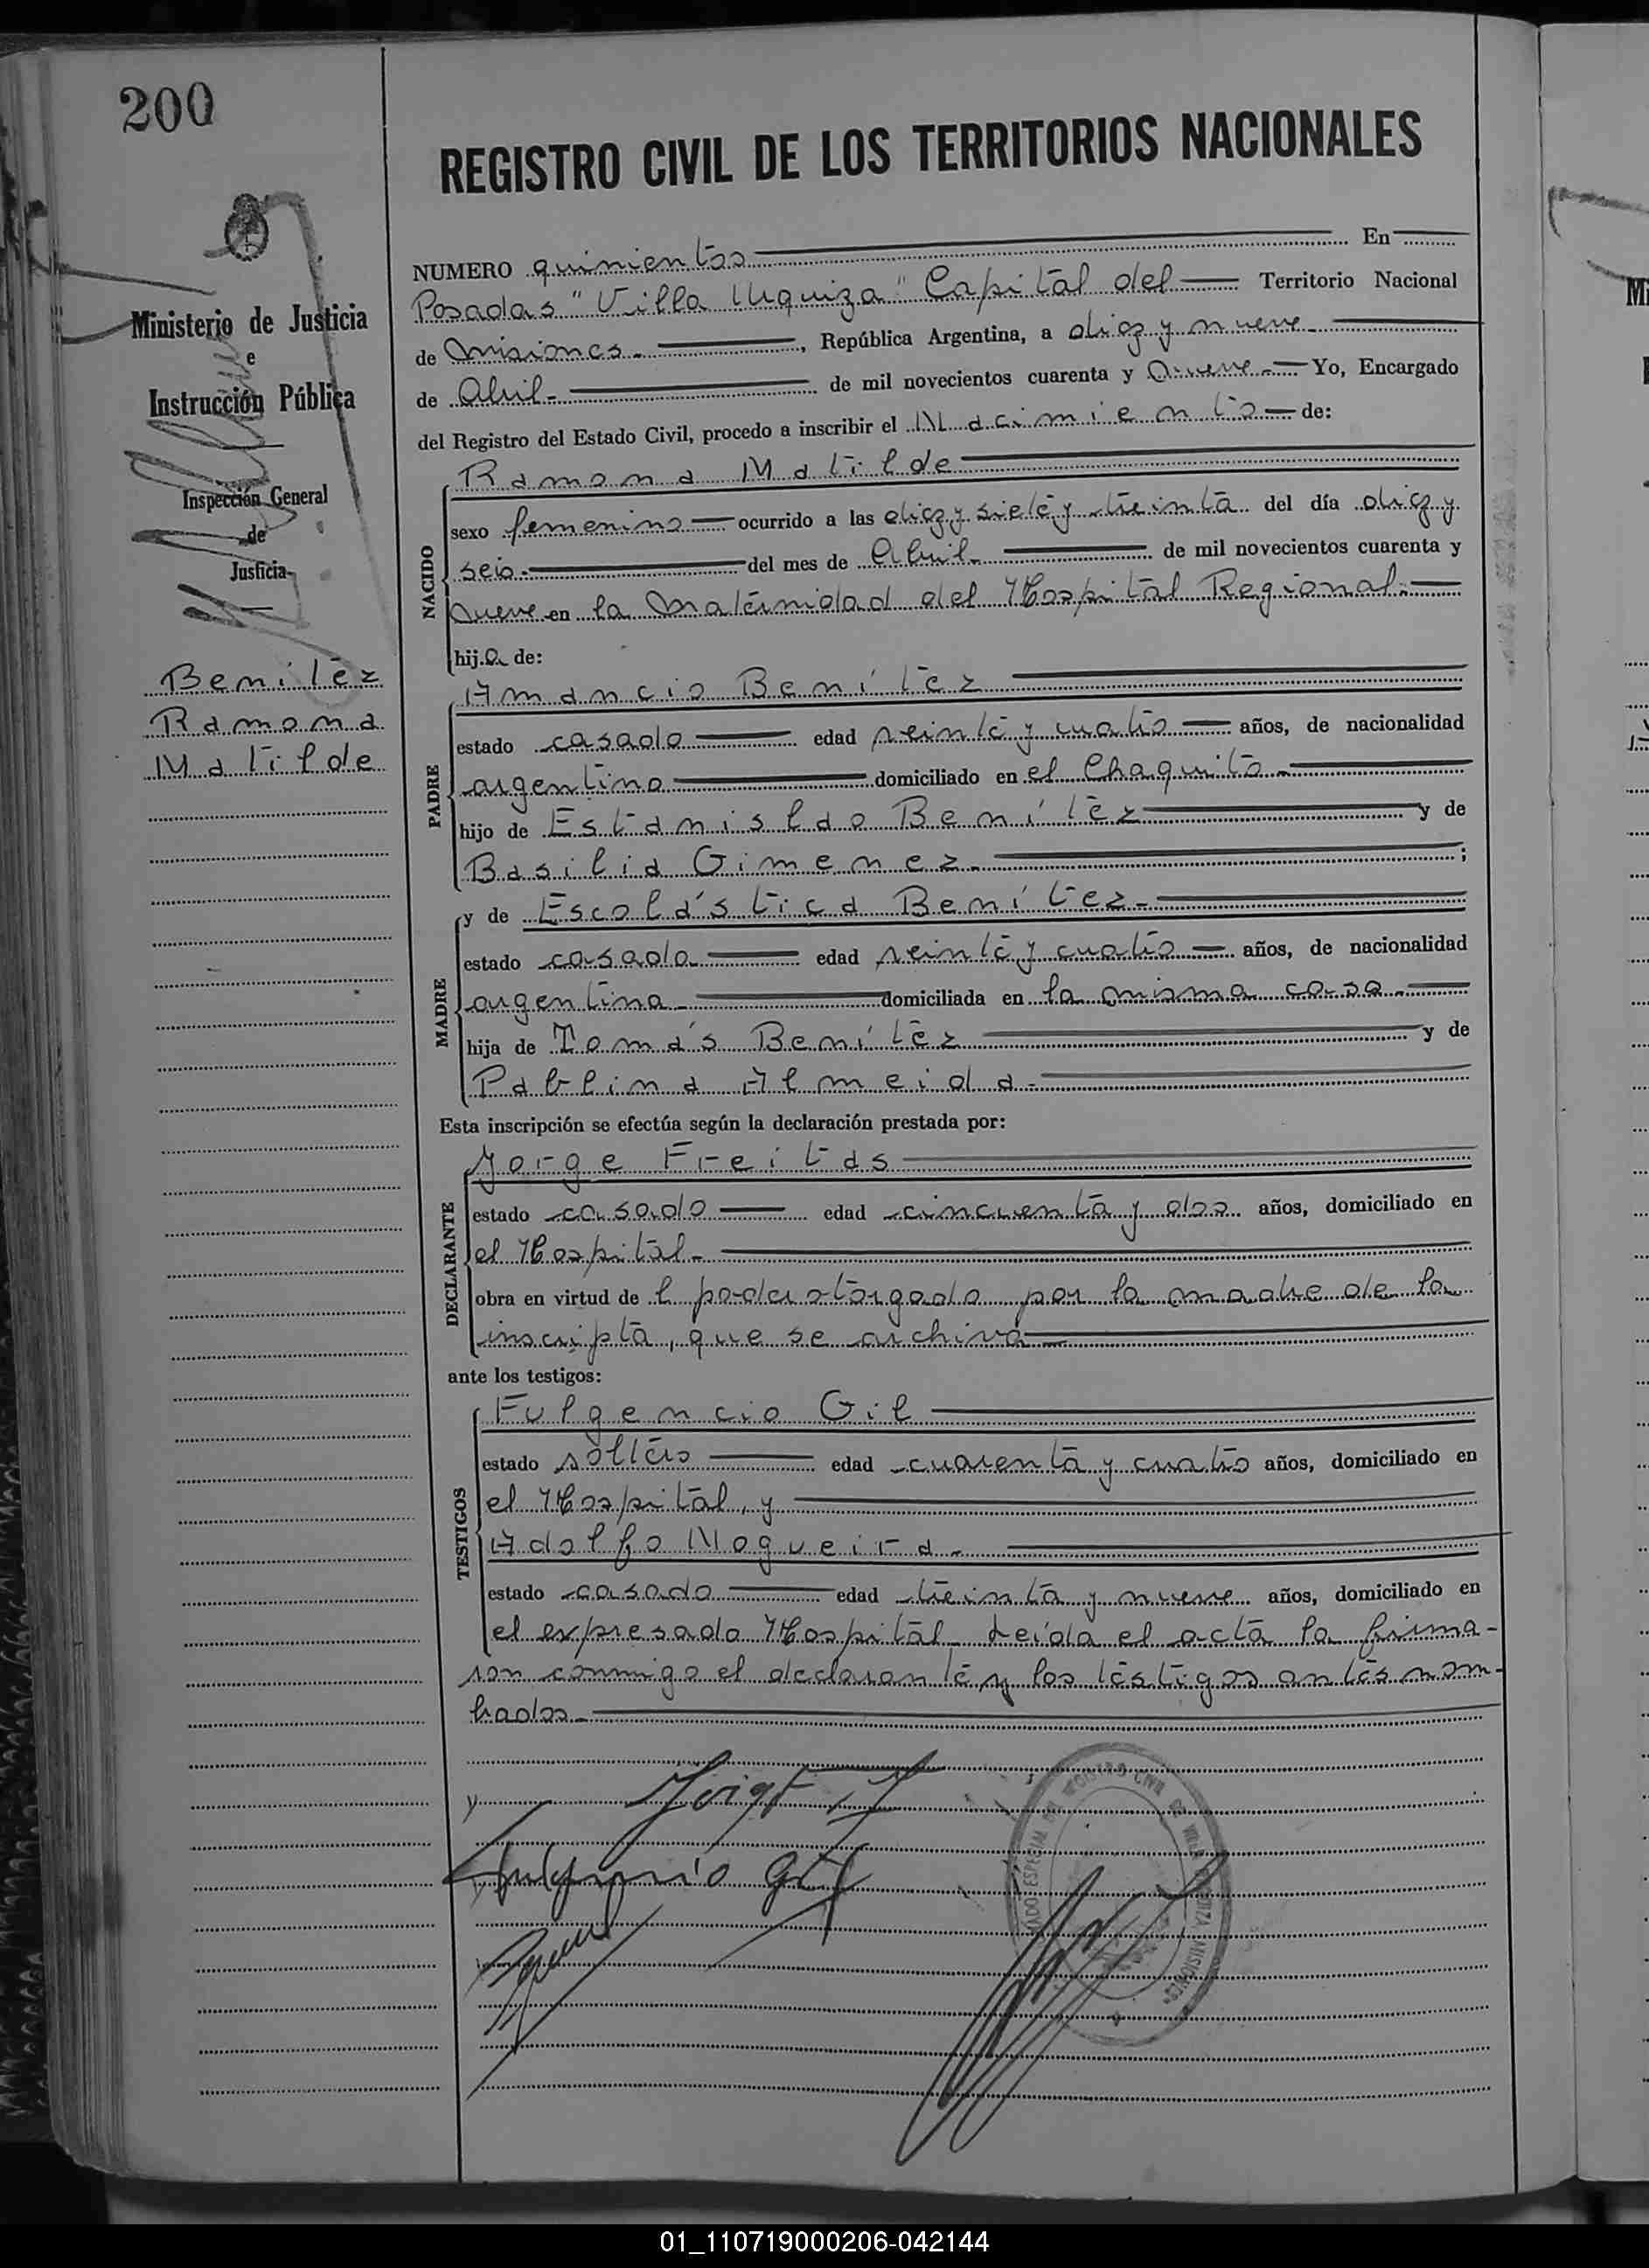 200
REGISTRO CIVIL DE LOS TERRITORIOS NACIONALES
Ministerio de Justicia
e
Instrucción Pública
Inspección General
de
Justicia
Benítez
Ramona
Matilde
NUMERO quinientos En
Posadas "Villa Urquiza" Capital del Territorio Nacional
de Misiones.-, República Argentina, a diez y nueve
de Abril- de mil novecientos cuarenta y nueve.- Yo, Encargado
del Registro del Estado Civil, procedo a inscribir el Nacimiento de:
Ramona Matilde
NACIDO
sexo femenino ocurrido a las diez y siete y treinta del día diez y
seis.- del mes de Abril- de mil novecientos cuarenta y
nueve en la Maternidad del Hospital Regional.-
hija de:
PADRE
Amancio Benítez
estado casado edad veinte y cuatro años, de nacionalidad
argentino domiciliado en el Chaquito.-
hijo de Estanislao Benítez y de
Basilia Gimenez.- ;
MADRE
y de Escolástica Benítez.-
estado casada edad veinte y cuatro años, de nacionalidad
argentina.- domiciliada en la misma casa.-
hija de Tomás Benítez y de
Pablina Almeida.-
Esta inscripción se efectúa según la declaración prestada por:
DECLARANTE
Jorge Freitas
estado casado edad cincuenta y dos años, domiciliado en
el Hospital.-
obra en virtud de l poder otorgado por la madre de la
inscripta, que se archiva
ante los testigos:
TESTIGOS
Fulgencio Gil
estado soltero edad cuarenta y cuatro años, domiciliado en
el Hospital, y
Adolfo Nogueira.-
estado casado edad treinta y nueve años, domiciliado en
el expresado Hospital. Leída el acta la firma-
ron conmigo el declarante y los testigos antes nom-
brados.-
Jorge F
Fulgencio Gil
REGISTRO CIVIL DE VILLA URQUIZA MISIONES
01_110719000206-042144